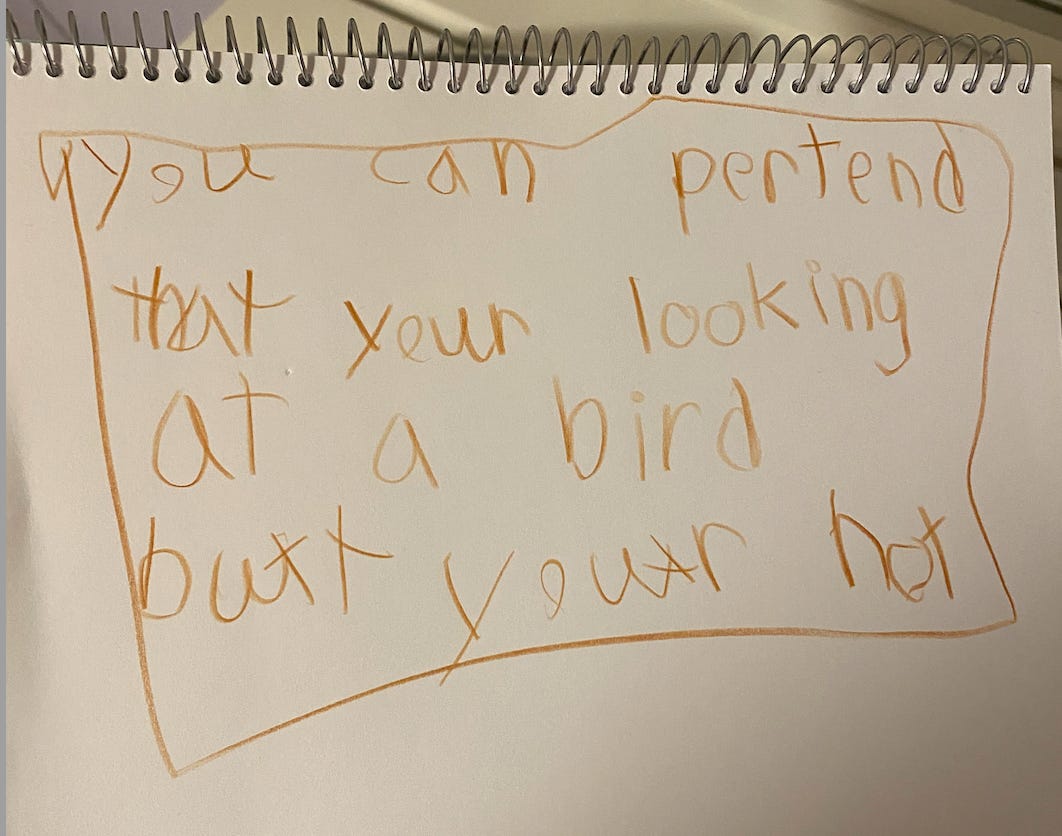 you can pertend
that your looking
at a bird
but your not